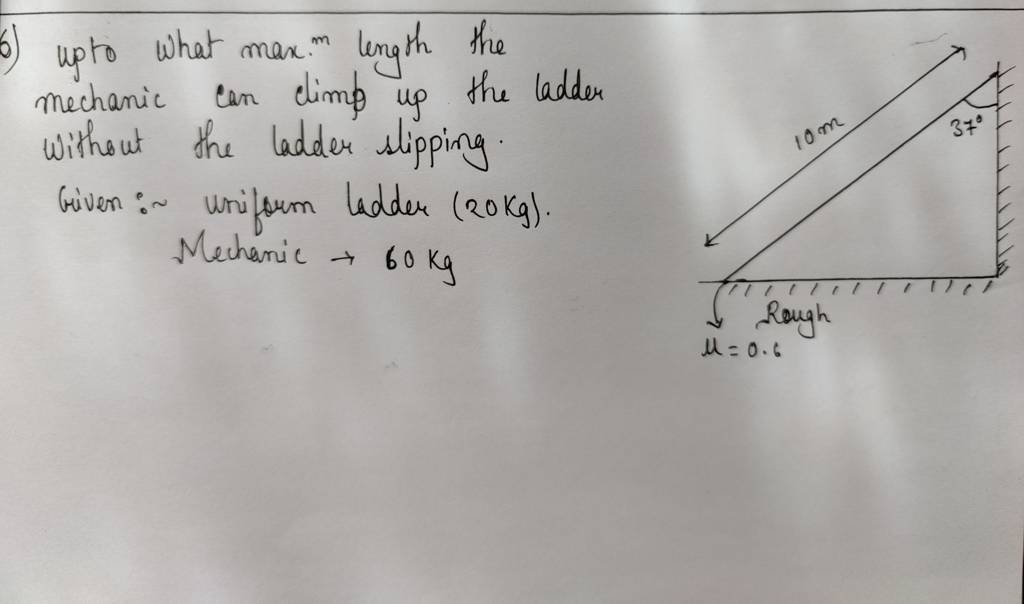 6) upto what max.m length the
mechanic can climb up the ladder
without the ladder slipping.
Given :~ uniform ladder (20 Kg).
Mechanic → 60 Kg
10 m
37°
Rough
μ = 0.6